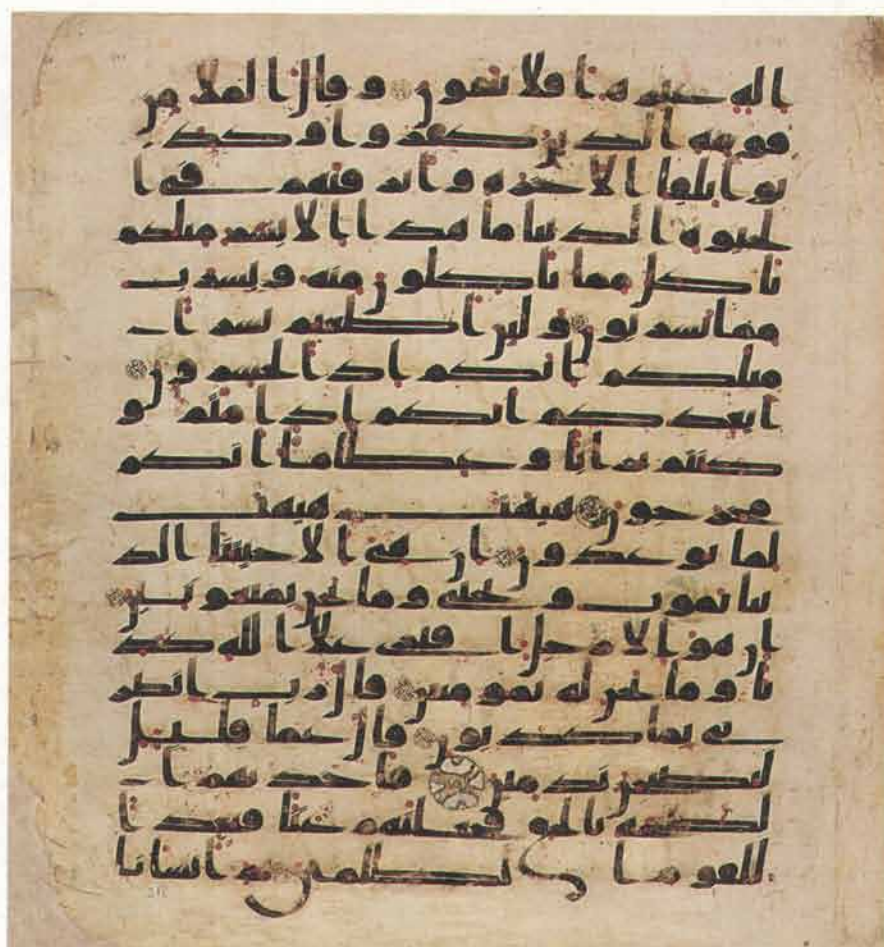 اله غيره افلا تتقون وقال الملا من
قومه الذين كفروا وكذ
بوا بلقا الاخره واترفنهم في ا
لحيوه الدنيا ما هذا الا بشر مثلكم
ياكل مما تاكلون منه ويشرب
مما تشربون ولين اطعتم بشرا
مثلكم انكم اذا لخسرون
ايعدكم انكم اذا متم و
كنتم ترابا وعظاما انكم
مخرجون هيهت هيهت
لما توعدون ان هي الا حيتنا الد
نيا نموت ونحيا وما نحن بمبعوثين
ان هو الا رجل افترى على الله كذ
با وما نحن له بمومنين قال رب انصر
ني بما كذبون قال عما قليل
ليصبحن ندمين فاخذتهم ا
لصيحه بالحق فجعلنهم غثا فبعدا
للقوم الظلمين ثم انشانا